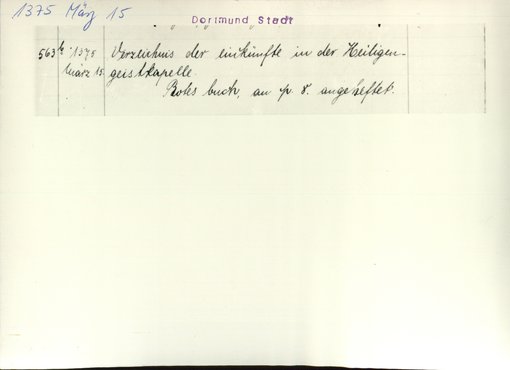 1375 März 15
Dortmund Stadt
563 1375 Verzeichnis der einkünfte in der Heiligen-
März 15. geistkapelle.
Rotes buch, an p. 8. angeheftet.